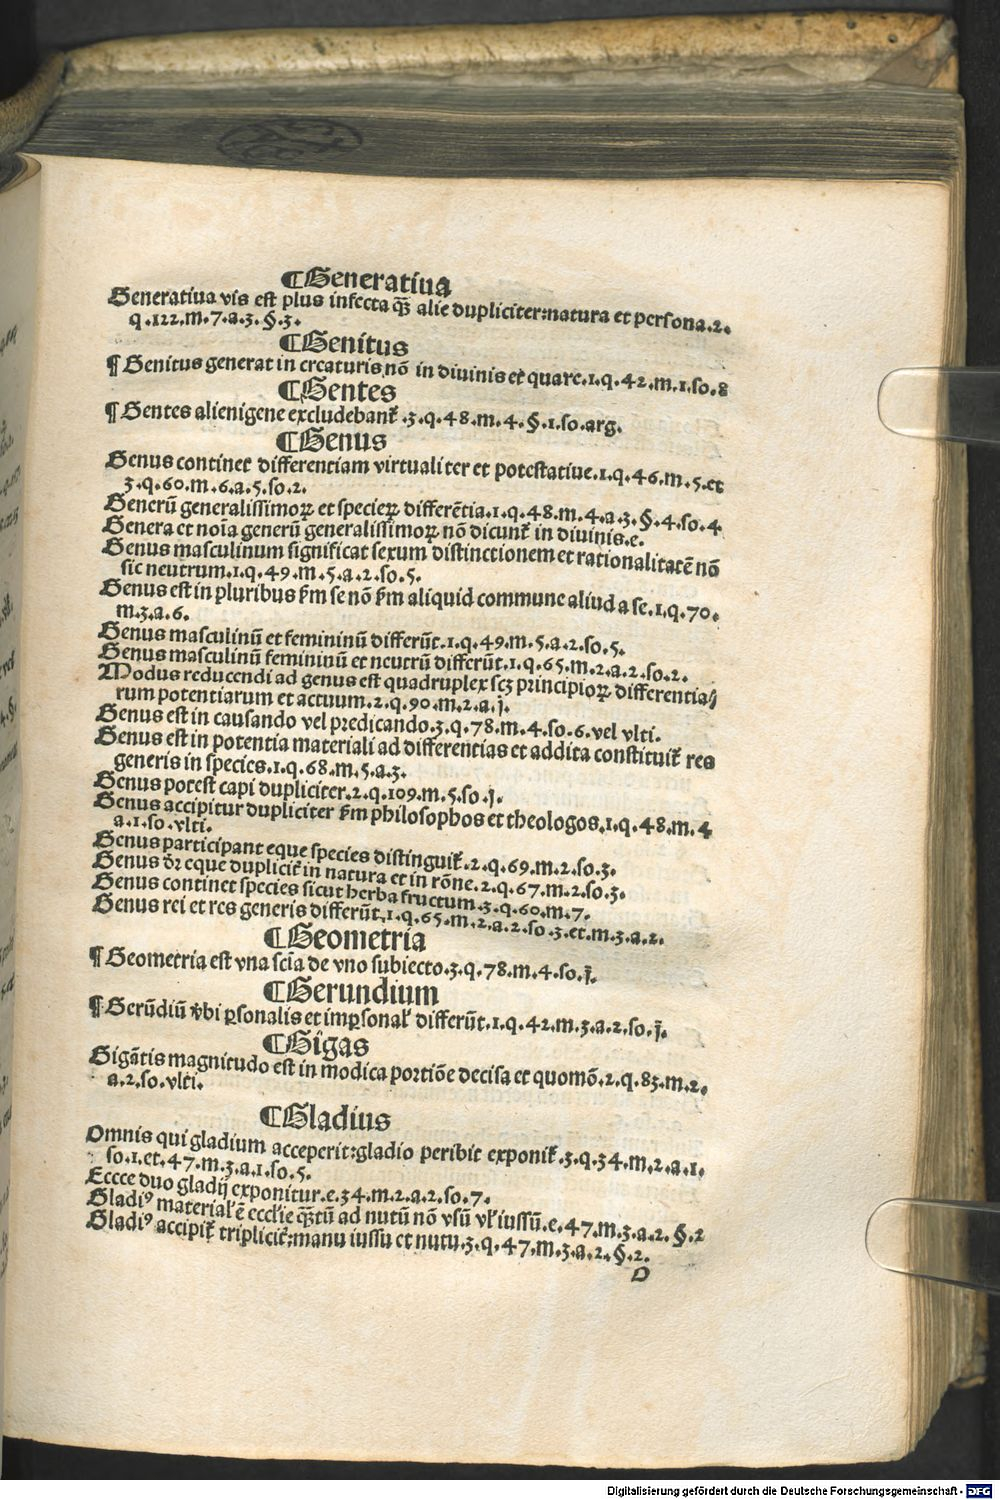 ¶Generatiua
Generatiua vis est plus infecta q̄ȝ alie dupliciter:natura et persona.2.
q.122.m.7.a.3.§.3.
¶Genitus
¶Genitus generat in creaturis nō in diuinis et quare.1.q.42.m.1.so.8
¶Gentes
¶Gentes alienigene excludebant᷑.3.q.48.m.4.§.1.so.arg.
¶Genus
Genus continet differentiam virtualiter et potestatiue.1.q.46.m.5.et
3.q.60.m.6.a.5.so.2.
Generū generalissimoꝝ et specieꝝ differētia.1.q.48.m.4.a.3.§.4.so.4
Genera et noīa generū generalissimoꝝ nō dicunt᷑ in diuinis.e.
Genus masculinum significat sexum distinctionem et rationalitatē nō
sic neutrum.1.q.49.m.5.a.2.so.5.
Genus est in pluribus ẜm se nō ẜm aliquid commune aliud a se.1.q.70.
m.3.a.6.
Genus masculinū et femininū differūt.1.q.49.m.5.a.2.so.5.
Genus masculinū femininū et neutrū differūt.1.q.65.m.2.a.2.so.2.
Modus reducendi ad genus est quadruplex scȝ principioꝝ differentia⸗
rum potentiarum et actuum.2.q.90.m.2.a.j.
Genus est in causando vel predicando.3.q.78.m.4.so.6.vel vlti.
Genus est in potentia materiali ad differentias et addita constituit᷑ res
generis in species.1.q.68.m.5.a.3.
Genus potest capi dupliciter.2.q.109.m.5.so.j.
Genus accipitur dupliciter ẜm philosophos et theologos.1.q.48.m.4
a.1.so.vlti.
Genus participant eque species distinguit᷑.2.q.69.m.2.so.3.
Genus dr̄ eque duplicit᷑ in natura et in rōne.2.q.67.m.2.so.3.
Genus continet species sicut herba fructum.3.q.60.m.7.
Genus rei et res generis differūt.1.q.65.m.2.a.2.so.3.et.m.3.a.2.
¶Geometria
¶Geometria est vna scīa de vno subiecto.3.q.78.m.4.so.j.
¶Gerundium
¶Gerūdiū v̄bi ꝑsonalis et imꝑsonał differūt.1.q.42.m.3.a.2.so.j.
¶Gigas
Gigātis magnitudo est in modica portiōe decisa et quomō.2.q.85.m.2.
a.2.so.vlti.
¶Gladius
Omnis qui gladium acceperit:gladio peribit exponit᷑.3.q.34.m.2.a.1.
so.1.et.47.m.3.a.1.so.5.
Eccce duo gladij exponitur.e.34.m.2.a.2.so.7.
Gladiꝰ materiał ē eccłie q̄ȝtū ad nutū nō vsū vł iussū.e.47.m.3.a.2.§.2
Gladiꝰ accipit᷑ triplicit᷑:manu iussu et nutu.3.q.47.m.3.a.2.§.2.
O
Digitalisierung gefördert durch die Deutsche Forschungsgemeinschaft - DFG